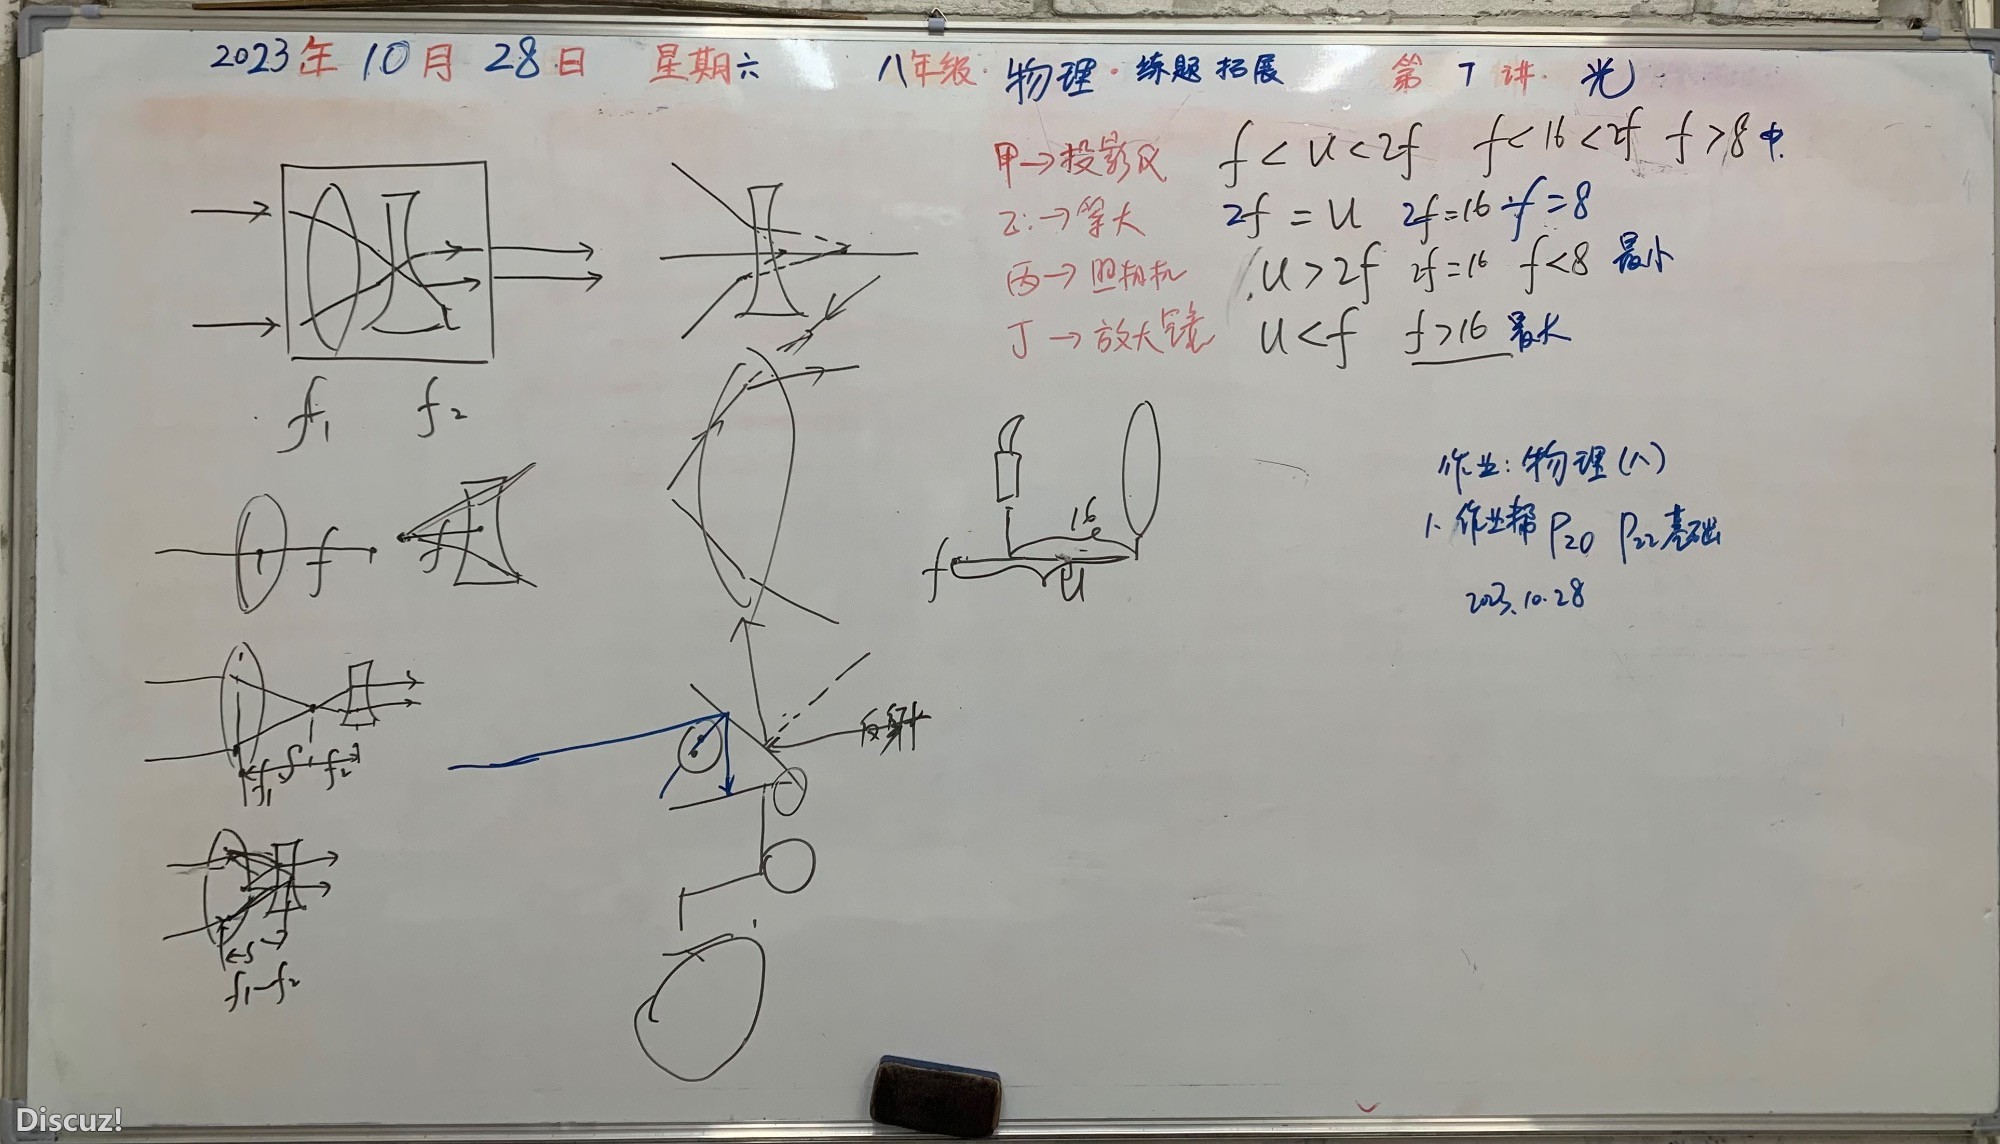 2023年 10月 28日 星期六 八年级·物理·练题拓展 第 7 讲· 光
甲→投影仪 f<u<2f f<16<2f f>8 中.
乙:→等大 2f=u 2f=16 f=8
丙→照相机 u>2f 2f=16 f<8 最小
丁→放大镜 u<f f>16 最大
f₁ f₂
16
f u
作业:物理(八)
1、作业帮 P20 P22基础
2023.10.28
f f
反射
f₁ f₂
f₁
s
f₁-f₂
Discuz!